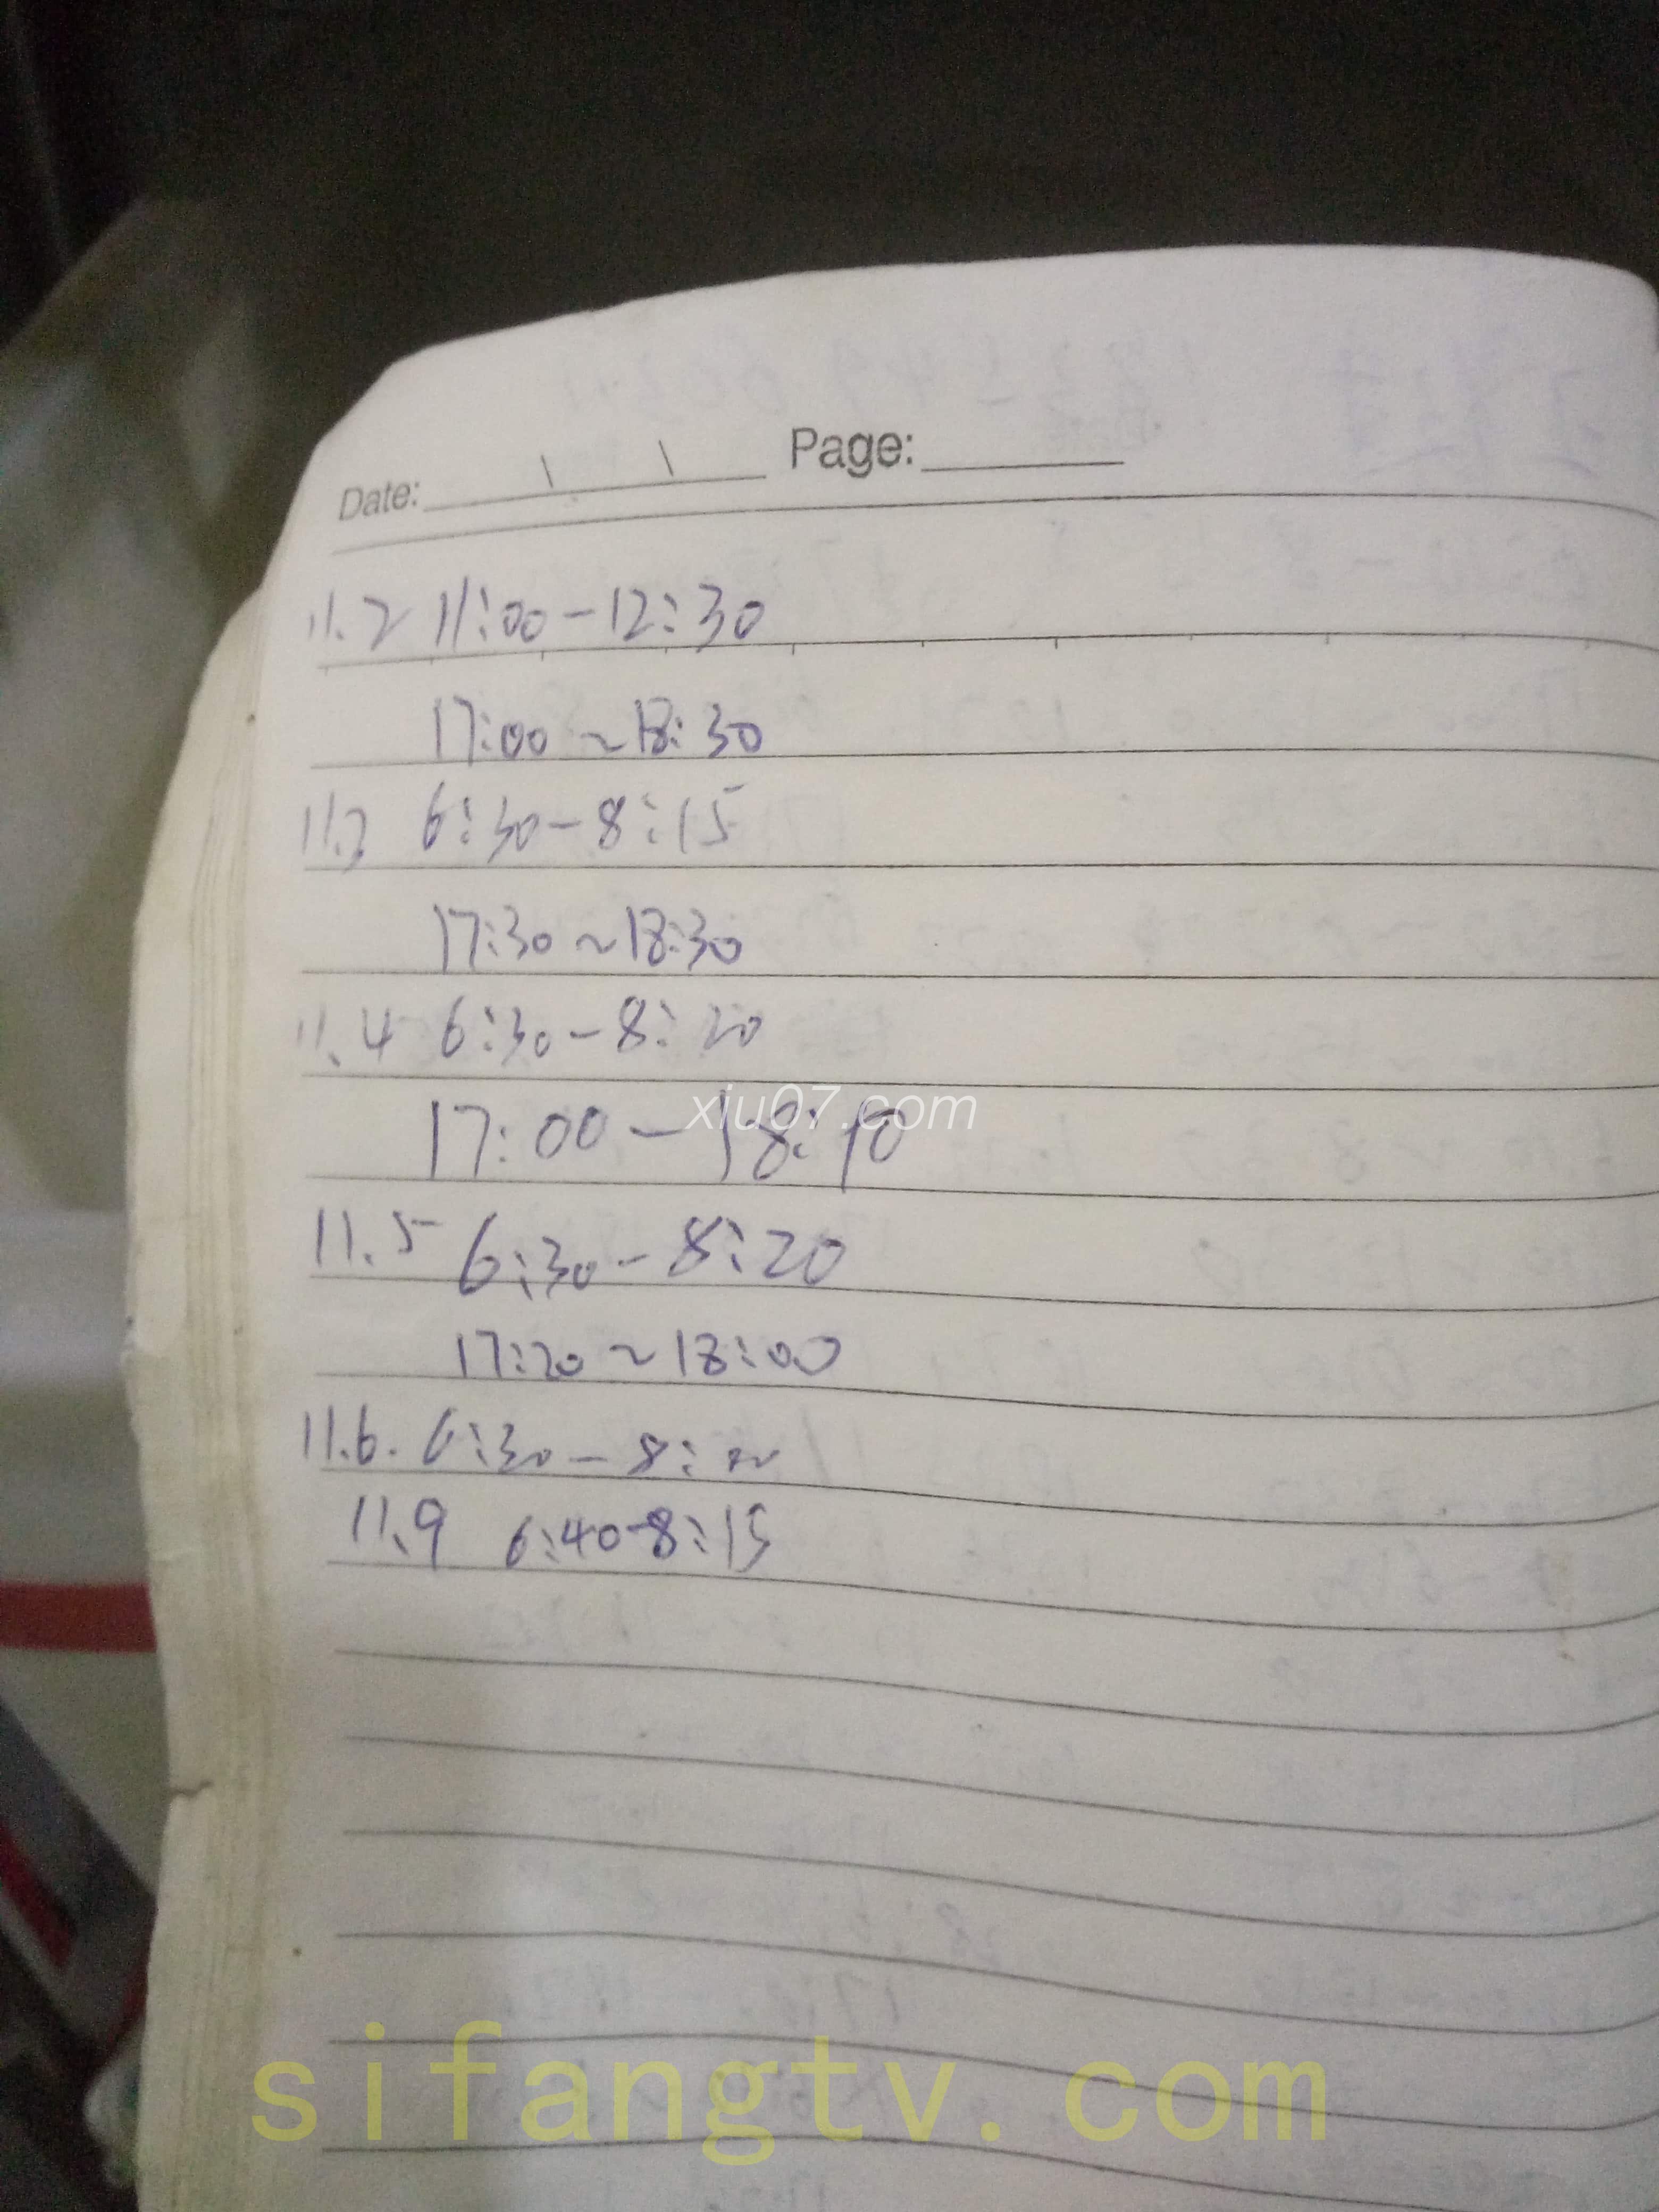 Date: Page:
11.2 11:00-12:30
17:00~18:30
11.3 6:30-8:15
17:30~18:30
11.4 6:30-8:20
xiu07.com
17:00-18:10
11.5 6:30-8:20
17:20~18:00
11.6. 6:30-8:
11.9 6:40-8:15
sifangtv.com